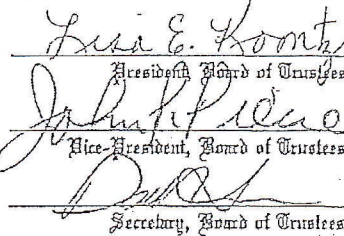 Lisa E. Koontz
President, Board of Trustees
John
Vice-President, Board of Trustees
Secretary, Board of Trustees